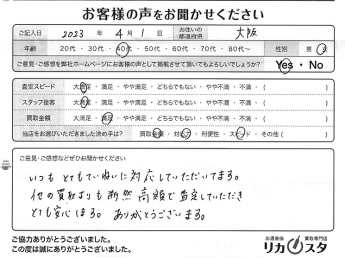 お客様の声をお聞かせください
ご記入日 2023 年 4 月 1 日 お住いの都道府県 大阪
年齢 20代・30代・40代・50代・60代・70代・80代〜 性別 男・女
ご意見・ご感想を弊社ホームページにお客様の声として掲載させて頂いてもよろしいでしょうか? Yes・No
査定スピード 大満足・満足・やや満足・どちらでもない・やや不満・不満・( )
スタッフ接客 大満足・満足・やや満足・どちらでもない・やや不満・不満・( )
買取金額 大満足・満足・やや満足・どちらでもない・やや不満・不満・( )
当店をお選びいただきました決め手は? 買取金額・対応・利便性・スピード・その他( )
ご意見・ご感想などぜひお聞かせください
いつも とてもていねいに対応していただいてます。
他の買取よりも断然 高額で査定していただき
とても安心します。 ありがとうございます。
ご協力ありがとうございました。
この度は誠にありがとうございました。
お酒楽器 買取専門店
リカスタ